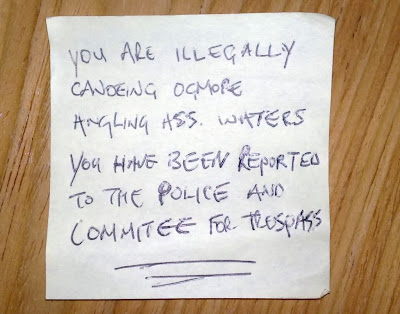 YOU ARE ILLEGALLY
CANOEING OGMORE
ANGLING ASS. WATERS
YOU HAVE BEEN REPORTED
TO THE POLICE AND
COMMITEE FOR TRESPASS